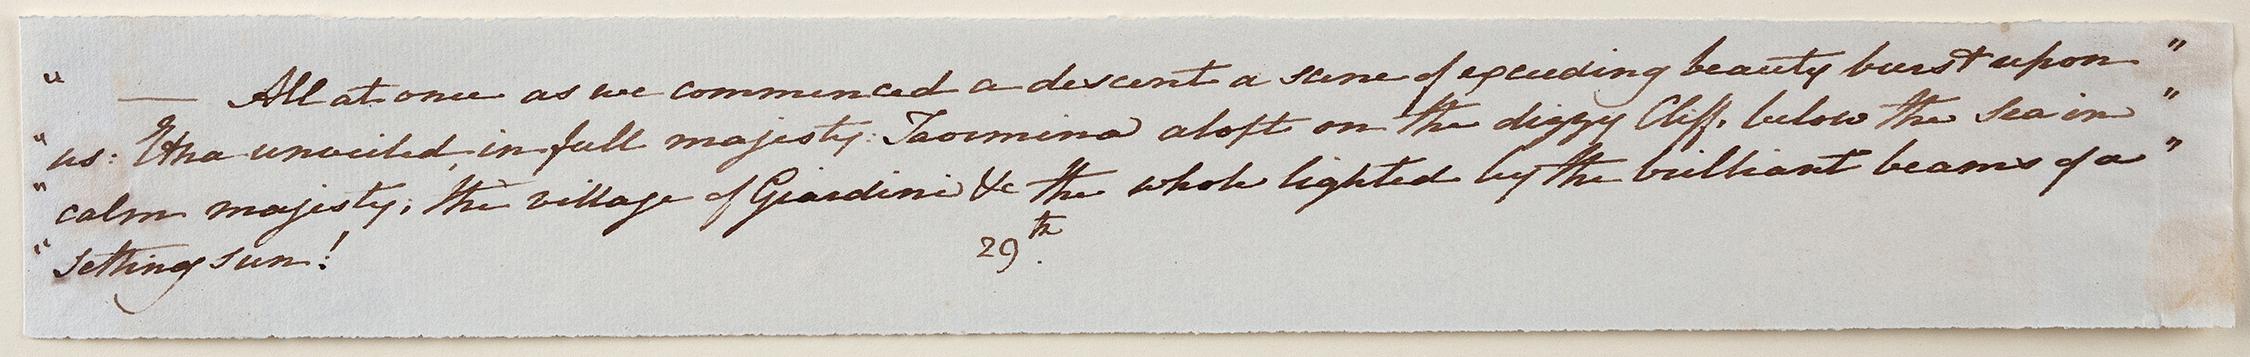 " — All at once as we commenced a descent a scene of exceeding beauty burst upon "
" us: Etna unveiled, in full majesty: Taormina aloft on the dizzy Cliff, below the sea in "
" calm majesty; the village of Giardini &c the whole lighted by the brilliant beams of a "
" setting sun!
29th.